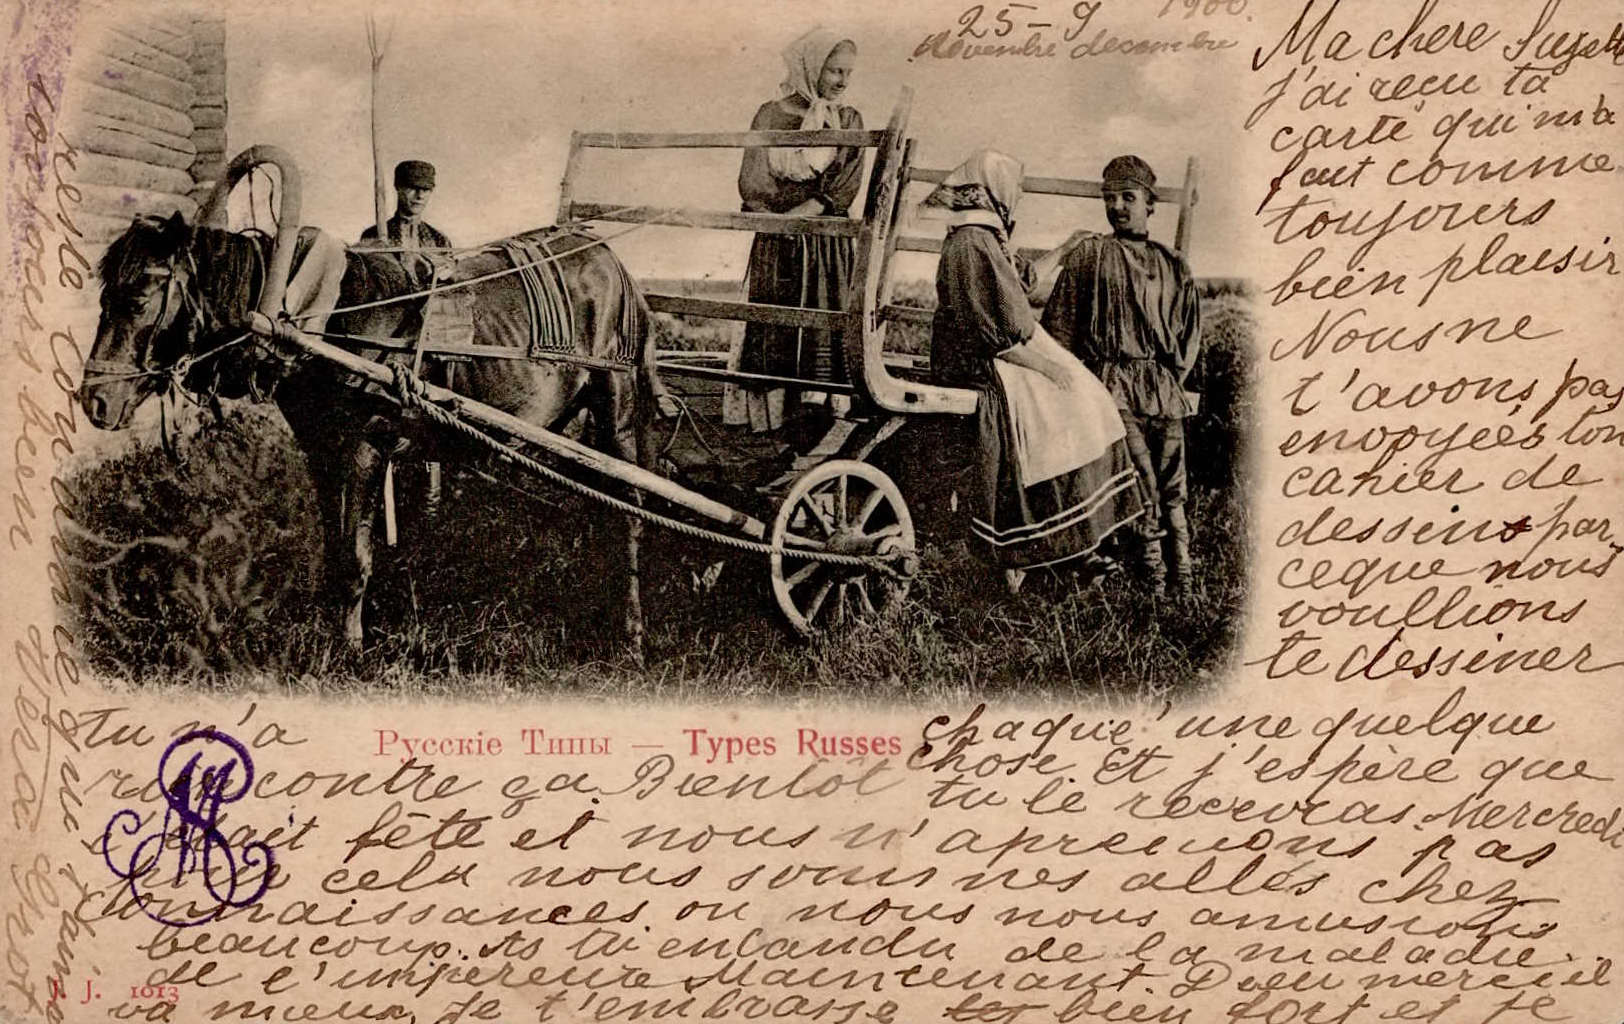 25-9 1900.
Novembre decembre
Ma chere Suzette
j'ai reçu ta
carte qui m'a
fait comme
toujours
bien plaisir
Nous ne
t'avons pas
envoyées ton
cahier de
dessins par
ceque nous
voullions
te dessiner
chaque' une quelque
chose. Et j'espère que
tu le recevras. Mercredi
tu n'a
rien contre ça. Bientôt
c'était fête et nous n'aprenions pas
pour cela nous sommes allés chez
connaissances ou nous nous amusions
beaucoup. As tu entandu de la maladie
de l'impereur Maintenant. Dieu merci il
va mieux. Je t'embrasse bien fort et je
reste ton amie qui t'aime
toujours bien Vera
Русскіе Типы — Types Russes
J. 1013